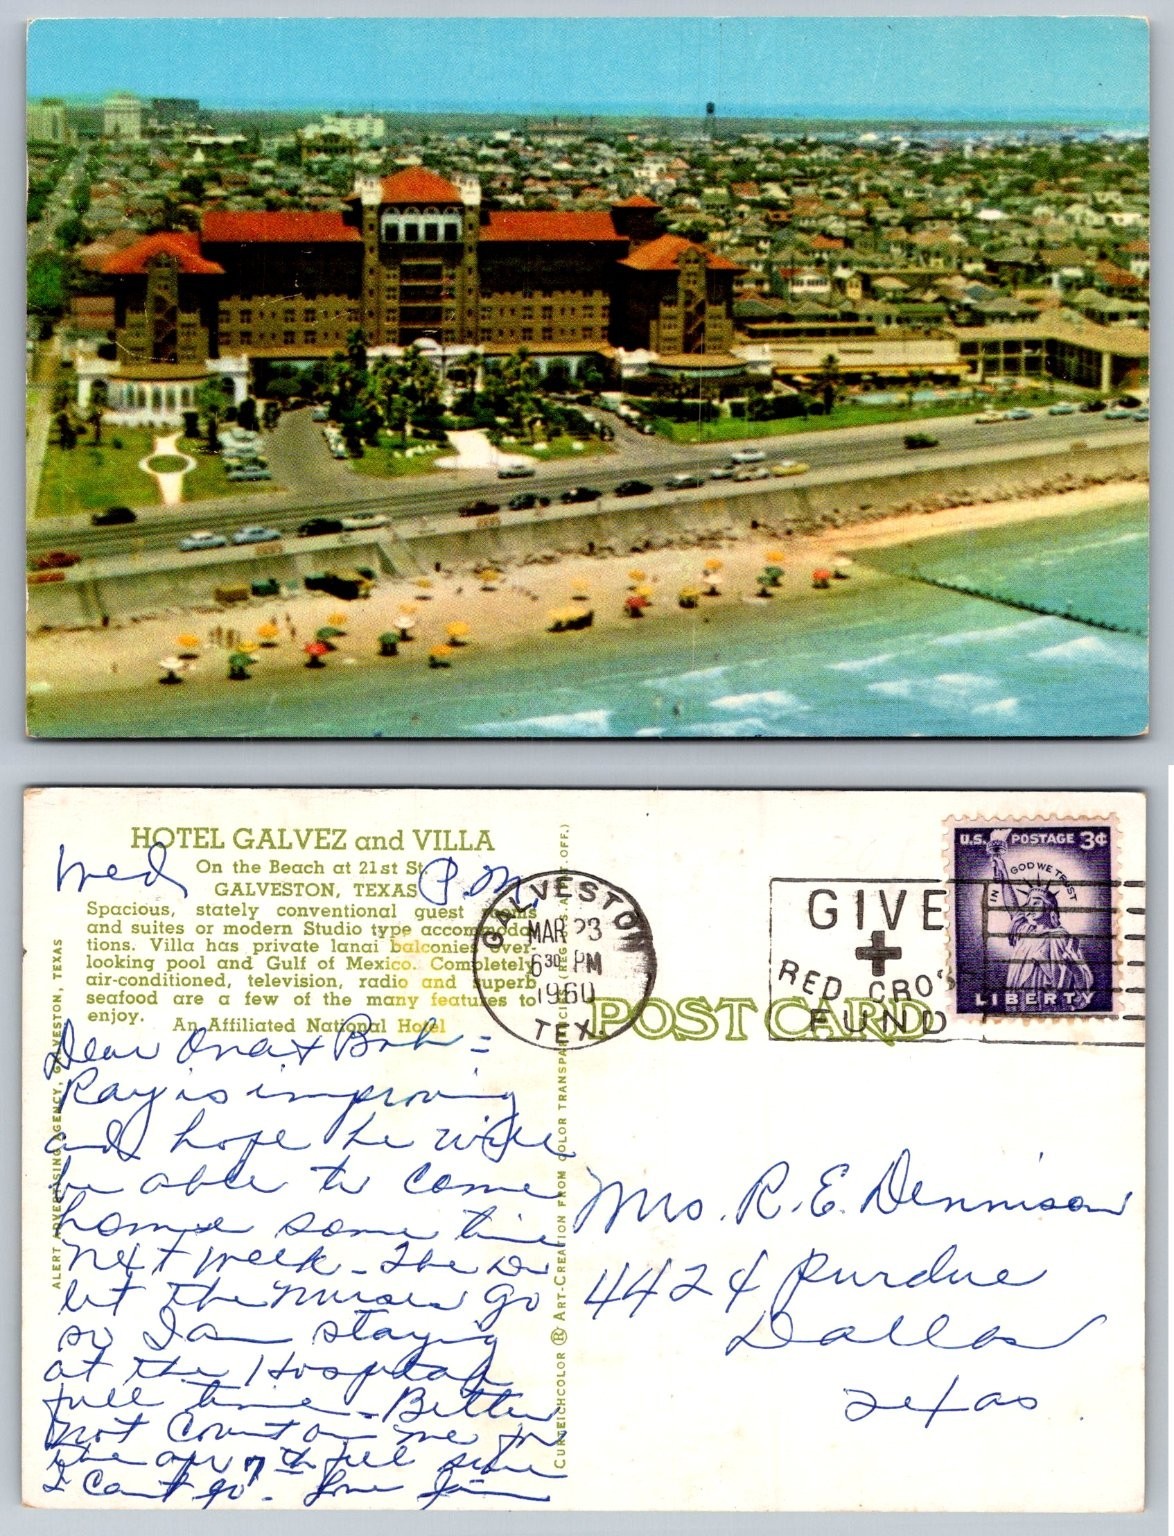 HOTEL GALVEZ and VILLA
On the Beach at 21st St
GALVESTON, TEXAS
Wed P.M.
Spacious, stately conventional guest rooms
and suites or modern Studio type accommoda-
tions. Villa has private lanai balconies over-
looking pool and Gulf of Mexico. Completely
air-conditioned, television, radio and superb
seafood are a few of the many features to
enjoy.
An Affiliated National Hotel
Dear Ona & Bob =
Ray is improving
and hope he will
be able to come
home some time
next week - The Dr
let the nurses go
so I am staying
at the Hospital
full time - Better
not count on me for
the apr 7th
I can't go - Love
ALERT ADVERTISING AGENCY, GALVESTON, TEXAS
CURTEICHCOLOR ® ART-CREATION FROM COLOR TRANSPARENCY (REG. U.S.A. PAT. OFF.)
GALVESTON
MAR 23
6 30 PM
1960
TEX.
GIVE
RED CROSS
FUND
U.S. POSTAGE 3¢
IN GOD WE TRUST
LIBERTY
POST CARD
Mrs. R. E. Dennison
4424 Purdue
Dallas
Texas